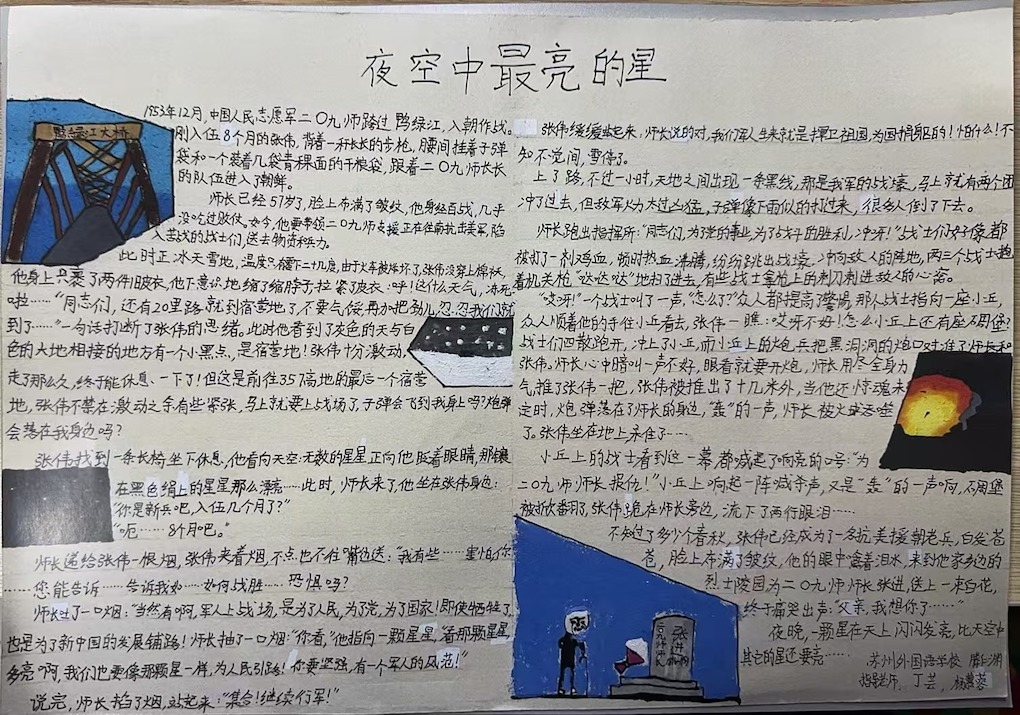 夜空中最亮的星
鸭绿江大桥
1953年12月,中国人民志愿军二〇九师跨过鸭绿江,入朝作战。
刚入伍8个月的张伟,背着一杆长长的步枪,腰间挂着子弹
袋和一个装着几袋青稞面的干粮袋,跟着二〇九师师长
的队伍进入了朝鲜。
师长已经57岁了,脸上布满了皱纹,他身经百战,几乎
没吃过败仗。如今,他要带领二〇九师支援正在往南抗击美军,陷
入苦战的战士们,送去物资和生力。
此时正冰天雪地,温度只有零下二十几度,由于火车被炸坏了,张伟没穿上棉袄,
他身上只裹了两件旧破衣,他下意识地缩了缩脖子,拉紧破衣:呼!这什么天气,冷死
啦……“同志们,还有20里路就到宿营地了,不要气馁,再加把劲儿,忍忍我们就
到了……”一句话打断了张伟的思绪。此时他看到了灰色的天与白
色的大地相接的地方有一个小黑点,是宿营地!张伟十分激动,
走了那么久,终于能休息一下了!但这是前往357高地的最后一个宿营
地,张伟不禁在激动之余有些紧张,马上就要上战场了,子弹会飞到我身上吗?炮弹
会落在我身边吗?
张伟找到一条长椅坐下休息,他看向天空:无数的星星正向他眨着眼睛,那镶
在黑色绢上的星星那么漂亮……此时,师长来了,他坐在张伟身边:
“你是新兵吧,入伍几个月了?”
“呃……8个月吧。”
师长递给张伟一根烟,张伟夹着烟,不点也不往嘴边送:“我有些……害怕,你
您能告诉……告诉我如……如何战胜……恐惧吗?
师长吐了一口烟:“当然有啊,军人上战场,是为了人民,为了党,为了国家!即使牺牲了,
也是为了新中国的发展铺路!师长抽了一口烟:“你看,”他指向一颗星星,“看那颗星星,
多亮啊,我们也要像那颗星一样,为人民引路!你要坚强,有一个军人的风范!”
说完,师长掐了烟,站起来:“集合!继续行军!”
张伟缓缓站起来,师长说的对,我们军人生来就是捍卫祖国,为国捐躯的!怕什么!不
知不觉间,雪停了。
上了路,不过一小时,天地之间出现一条黑线,那是我军的战壕,马上就有两个团
冲了过去,但敌军火力太过凶猛,子弹像下雨似的打过来,很多人倒了下去。
师长跑出指挥所:“同志们,为了党的事业,为了战斗的胜利,冲呀!”战士们好像都
被打了一剂鸡血,顿时热血沸腾,纷纷跳出战壕,冲向敌人的阵地,两三个战士抱
着机关枪“哒哒哒”地扫了进去,有些战士拿枪上的刺刀刺进敌人的心窝。
“哎呀!”一个战士叫了一声,“怎么了?”众人都提高了警惕,那人战士指向一座小丘,
众人顺着他的手往小丘看去,张伟一瞧:哎呀不好!怎么小丘上还有座碉堡?
战士们四散跑开,冲上了小丘,而小丘上的炮兵把黑洞洞的炮口对准了师长和
张伟。师长心中暗叫一声不好,眼看就要开炮,师长用尽全身力
气推了张伟一把,张伟被推出了十几米外,当他还惊魂未
定时,炮弹落在了师长的身边,“轰”的一声,师长被火球吞噬
了。张伟坐在地上呆住了……
小丘上的战士看到这一幕都喊起了响亮的口号:“为
二〇九师师长报仇!”小丘上响起一阵喊杀声,又是“轰”的一声响,碉堡
被掀翻了,张伟跪在师长旁边,流下了两行眼泪……
不知过了多少个春秋,张伟已经成为了一名抗美援朝老兵,白发苍
苍,脸上布满了皱纹,他的眼中含着泪水,来到他家乡边的
烈士陵园为二〇九师师长张进,送上一束白花,
终于痛哭出声:“父亲,我想你了……”
夜晚,一颗星在天上闪闪发亮,比天空中
其它的星还要亮……
苏州外国语学校
指导老师:丁芸,杨